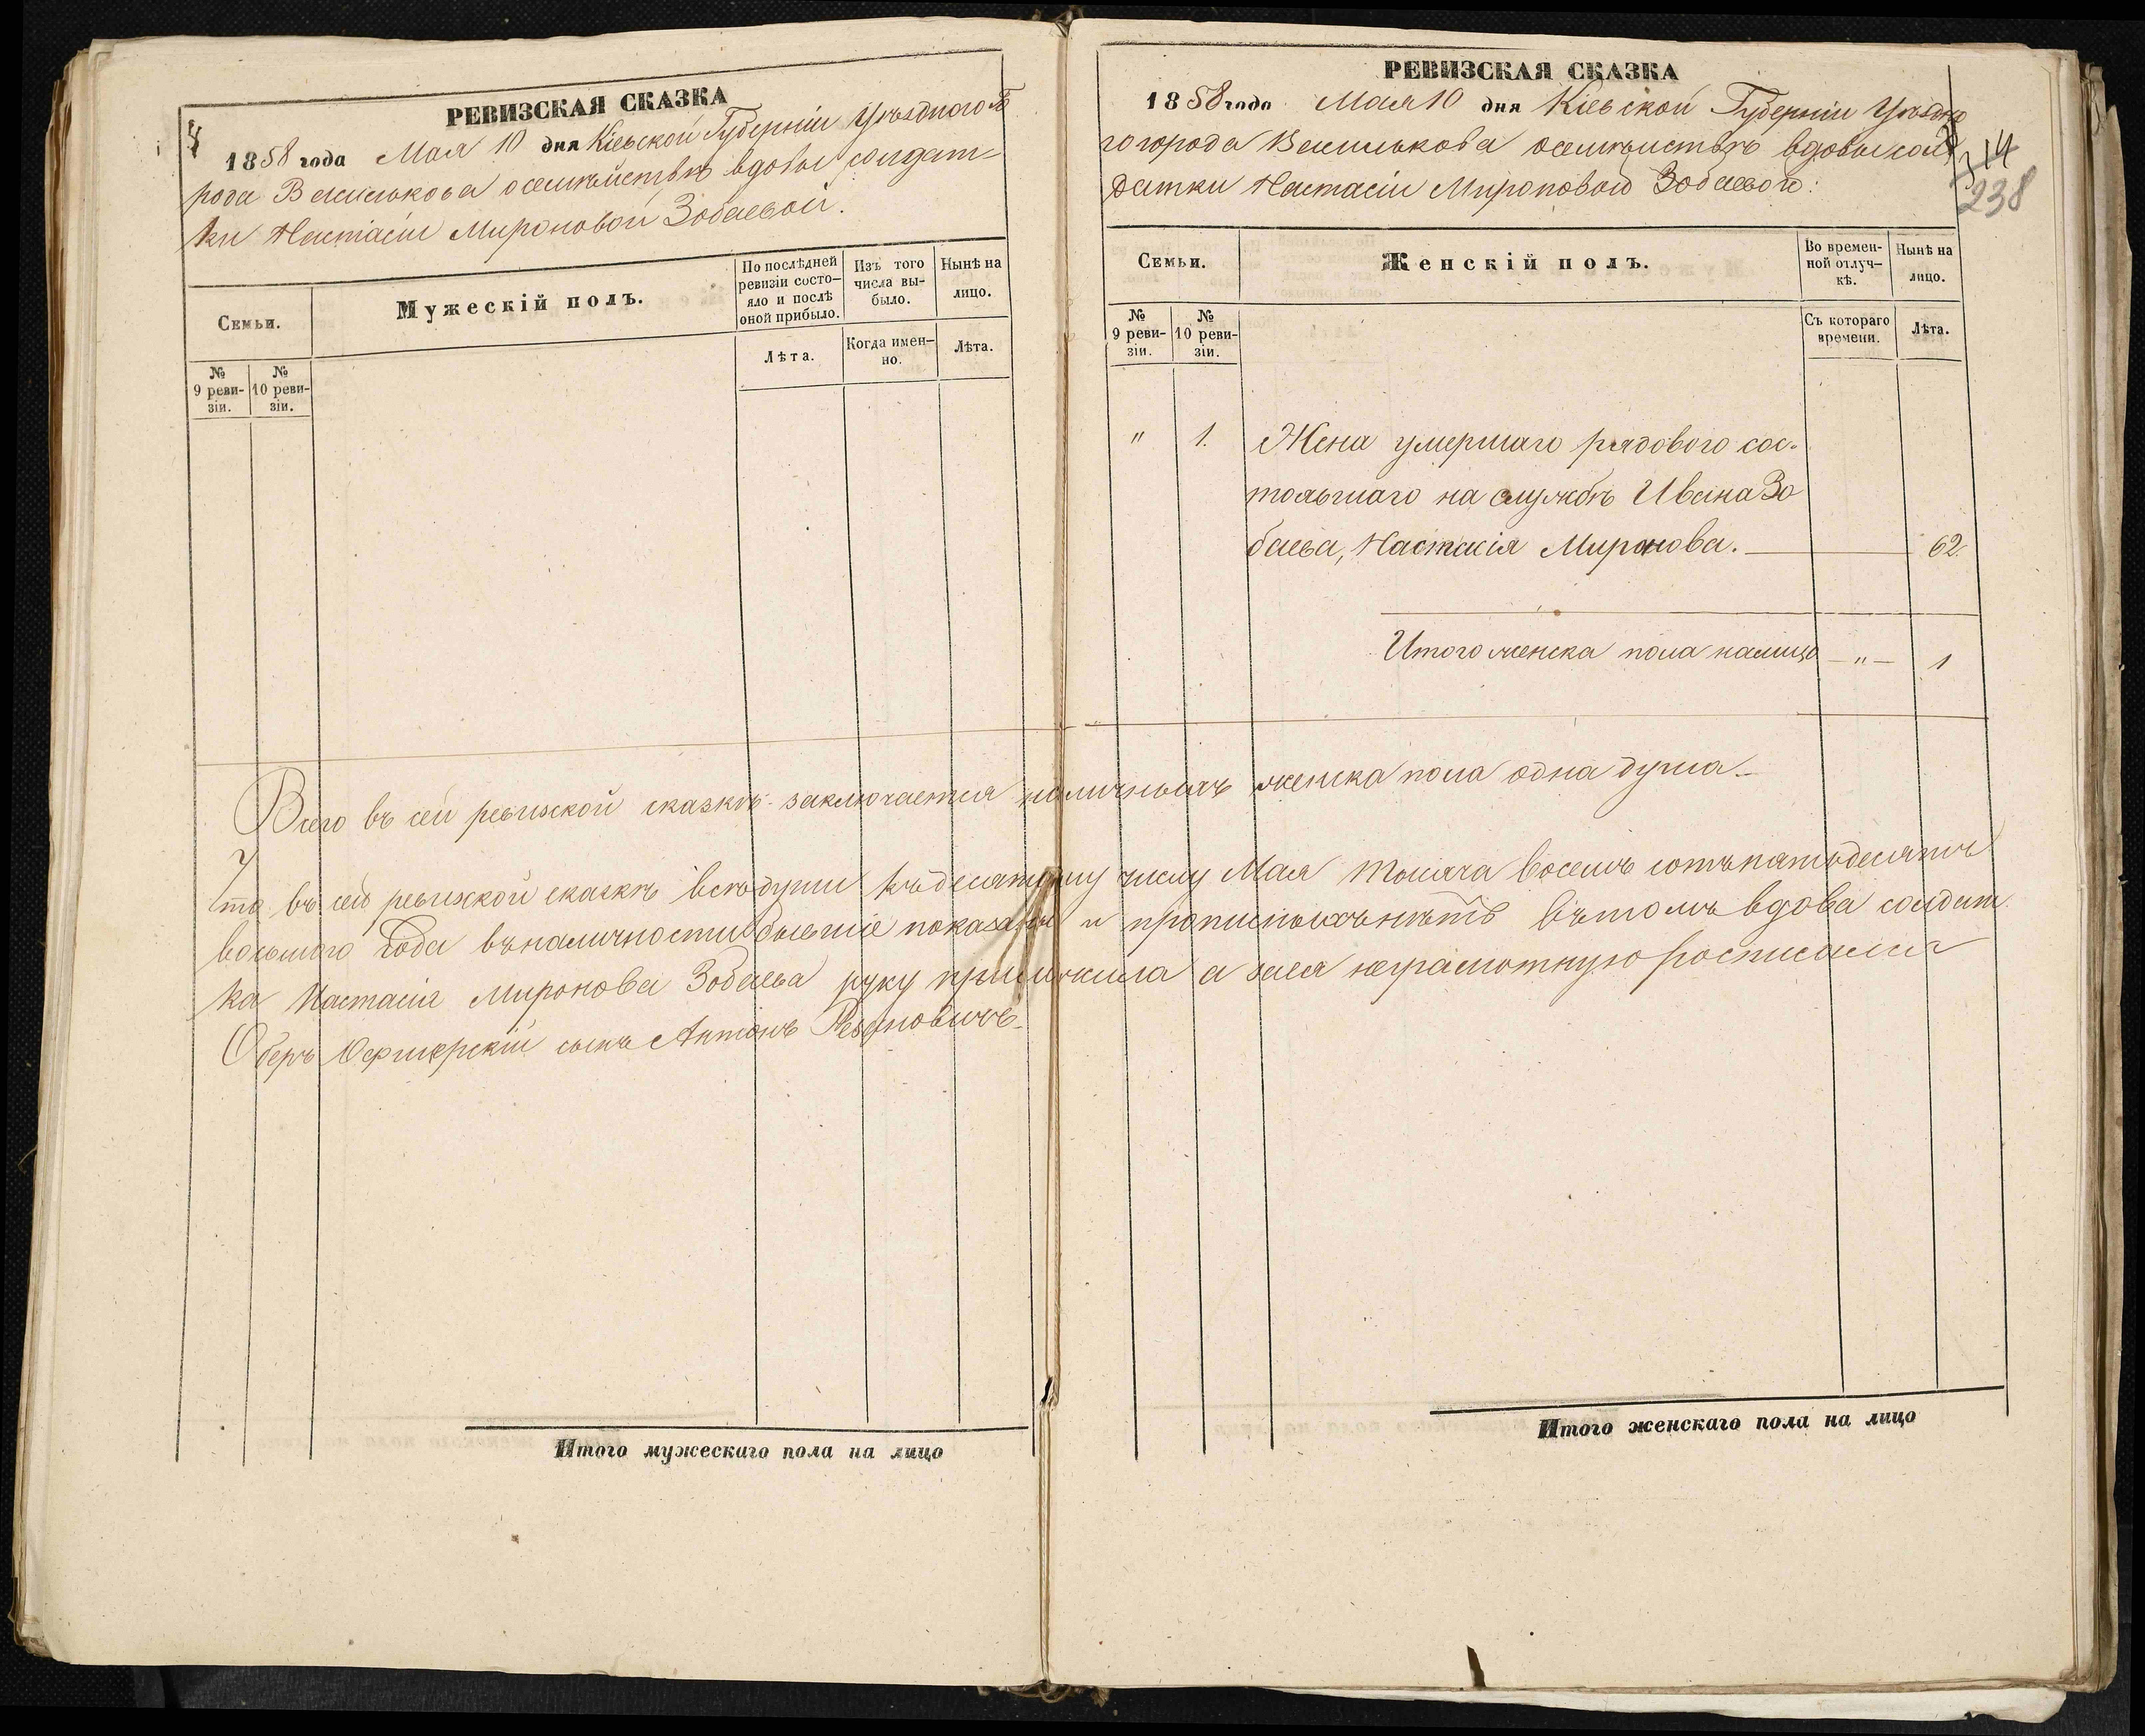 РЕВИЗСКАЯ СКАЗКА
1858 года Мая 10 дня Кіевской Губерніи Уѣзднаго го
рода Василькова о семѣйствѣ вдовы солдат-
ки Настасіи Мироновой Зобаевой.
Семьи.
Мужескій полъ.
По послѣдней
ревизіи состо-
яло и послѣ
оной прибыло.
Изъ того
числа вы-
было.
Нынѣ на
лицо.
№
9 реви-
зіи.
№
10 реви-
зіи.
Лѣта.
Когда имен-
но.
Лѣта.
РЕВИЗСКАЯ СКАЗКА
1858 года Мая 10 дня Кіевской Губерніи Уѣздна
го города Василькова о семѣйствѣ вдовы сол
датки Настасіи Мироновой Зобаевой:
314
238
Семьи.
Женскій полъ.
Во времен-
ной отлуч-
кѣ.
Нынѣ на
лицо.
№
9 реви-
зіи.
№
10 реви-
зіи.
Съ котораго
времени.
Лѣта.
" 1. Жена умершаго рядового сос-
тоявшаго на службѣ Ивана Зо
баева, Настасія Миронова. 62.
Итого женска пола налицо — " — 1
Всего въ сей ревизской сказкѣ заключается наличныхъ женска пола одна душа
Что въ сей ревизской сказкѣ всѣ души къ десятому числу Мая тысяча восемь сотъ пятьдесятъ
восьмаго года въ наличности бывшіе показаны и прописныхъ нѣтъ въ томъ вдова солдат
ка Настасія Миронова Зобаева руку приложила а за нея неграмотную росписался
Оберъ Офицерскій сынъ Антонъ
Итого мужескаго пола на лицо
Итого женскаго пола на лицо